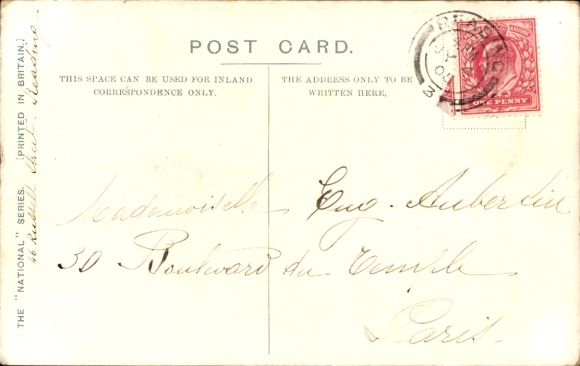 POST CARD.
THIS SPACE CAN BE USED FOR INLAND
CORRESPONDENCE ONLY.
THE ADDRESS ONLY TO BE
WRITTEN HERE,
READING
ONE PENNY
Mademoiselle Eug. Aubertin
30 Boulevard du Temple
Paris
THE "NATIONAL" SERIES. (PRINTED IN BRITAIN.)
46 Russell Street. Reading